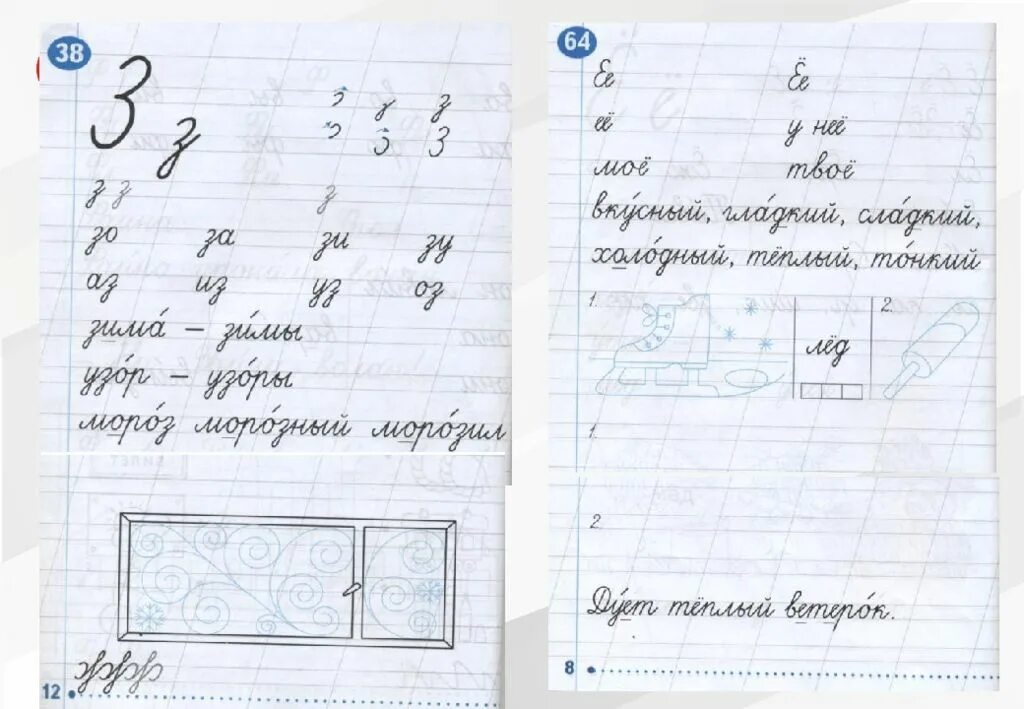 38
З з з у з
з з З
з з з
зо за зи зу
аз из уз оз
зима́ – зи́мы
узо́р – узо́ры
моро́з моро́зный моро́зил
12
64
Ее Ёе
её у неё
моё твоё
вку́сный, гла́дкий, сла́дкий,
холо́дный, тёплый, то́нкий
1. лёд 2.
1.
2.
Ду́ет тёплый ветеро́к.
8